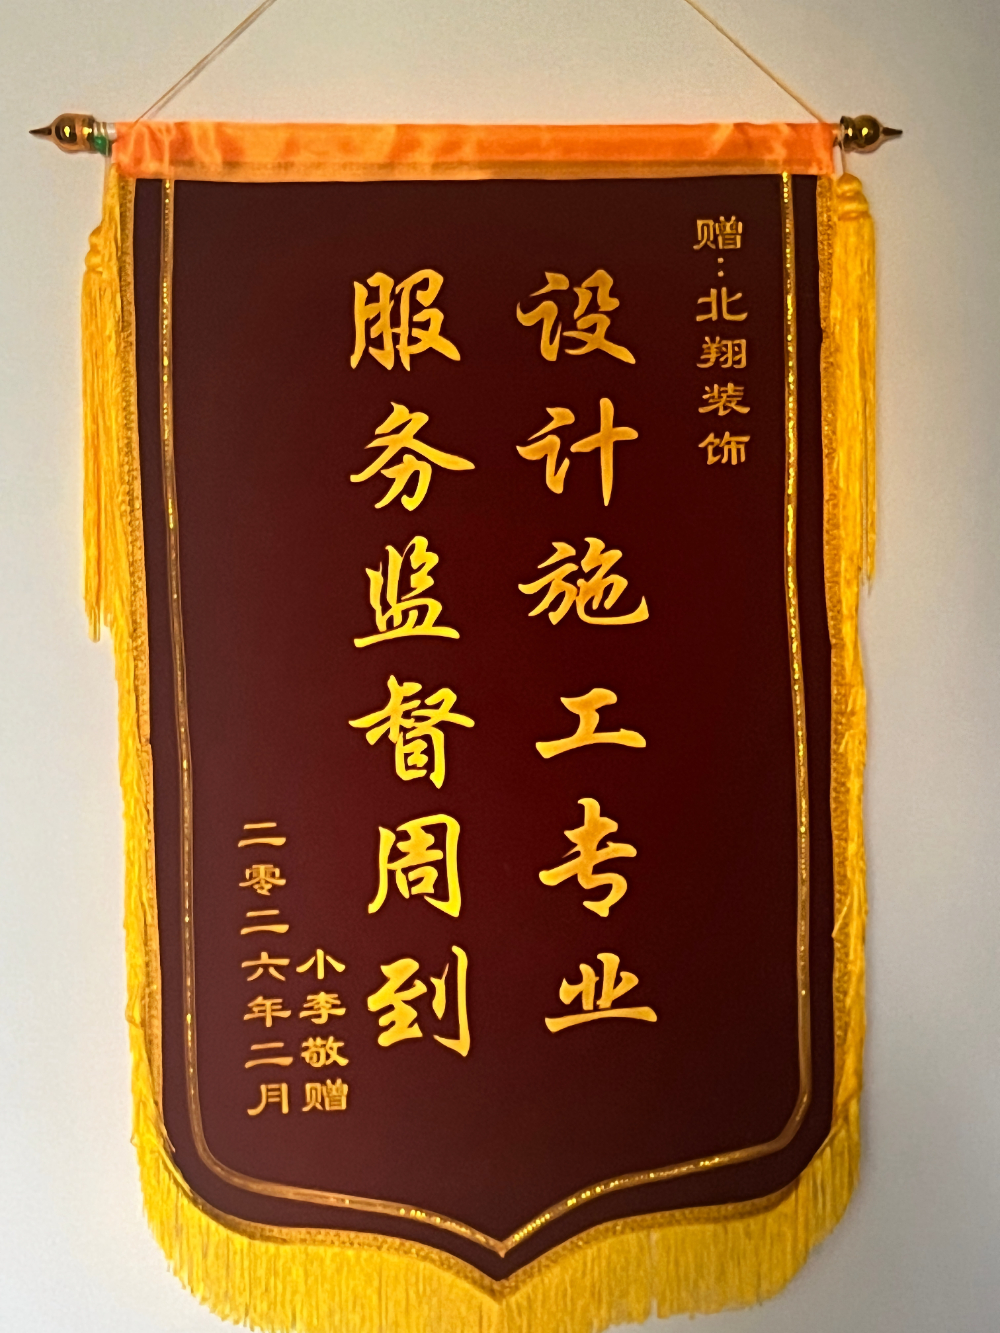 赠:北翔装饰
设计施工专业
服务监督周到
小李敬赠
二零二六年二月